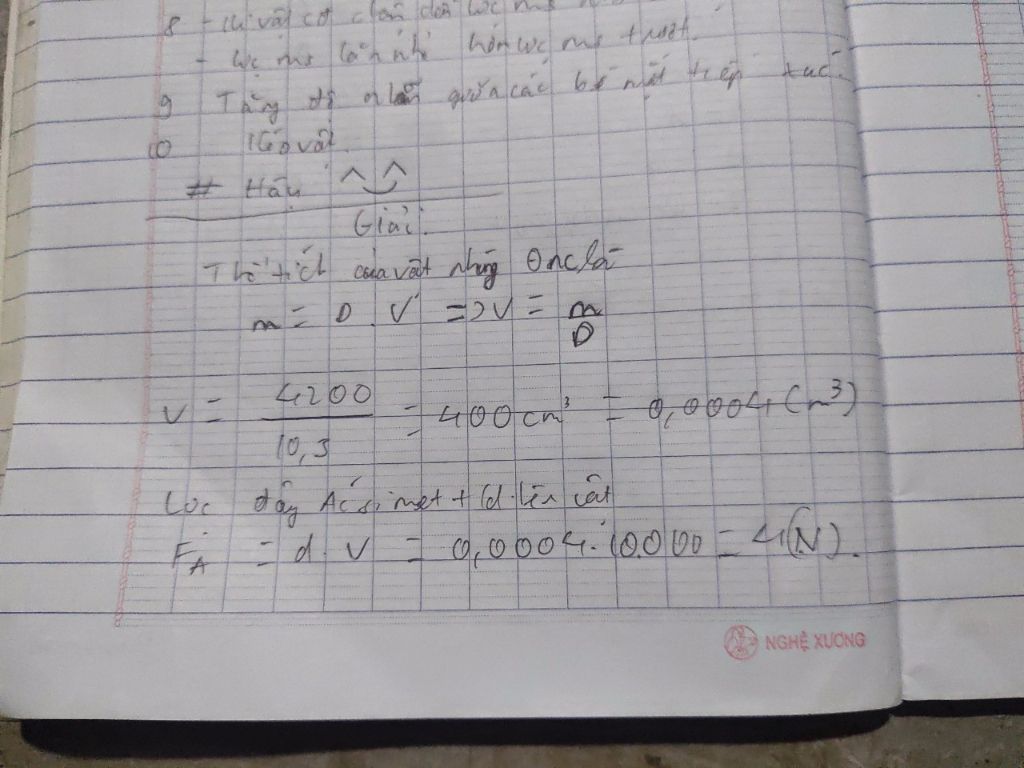 8 - khi vật có lực ms
- lực ms lăn nhỏ hơn lực ms trượt.
9 Tăng độ nhẵn giữa các bề mặt tiếp xúc.
10 Kéo vật.
# Hậu ^‿^
Giải:
Thể tích của vật nhúng là
m = D. V => V = m/D
V = 4200/10,5 = 400 cm³ = 0,0004 (m³)
Lực đẩy Ácsimet + d lên vật
F_A = d. V = 0,0004. 10000 = 4(N).
NGHỆ XƯƠNG